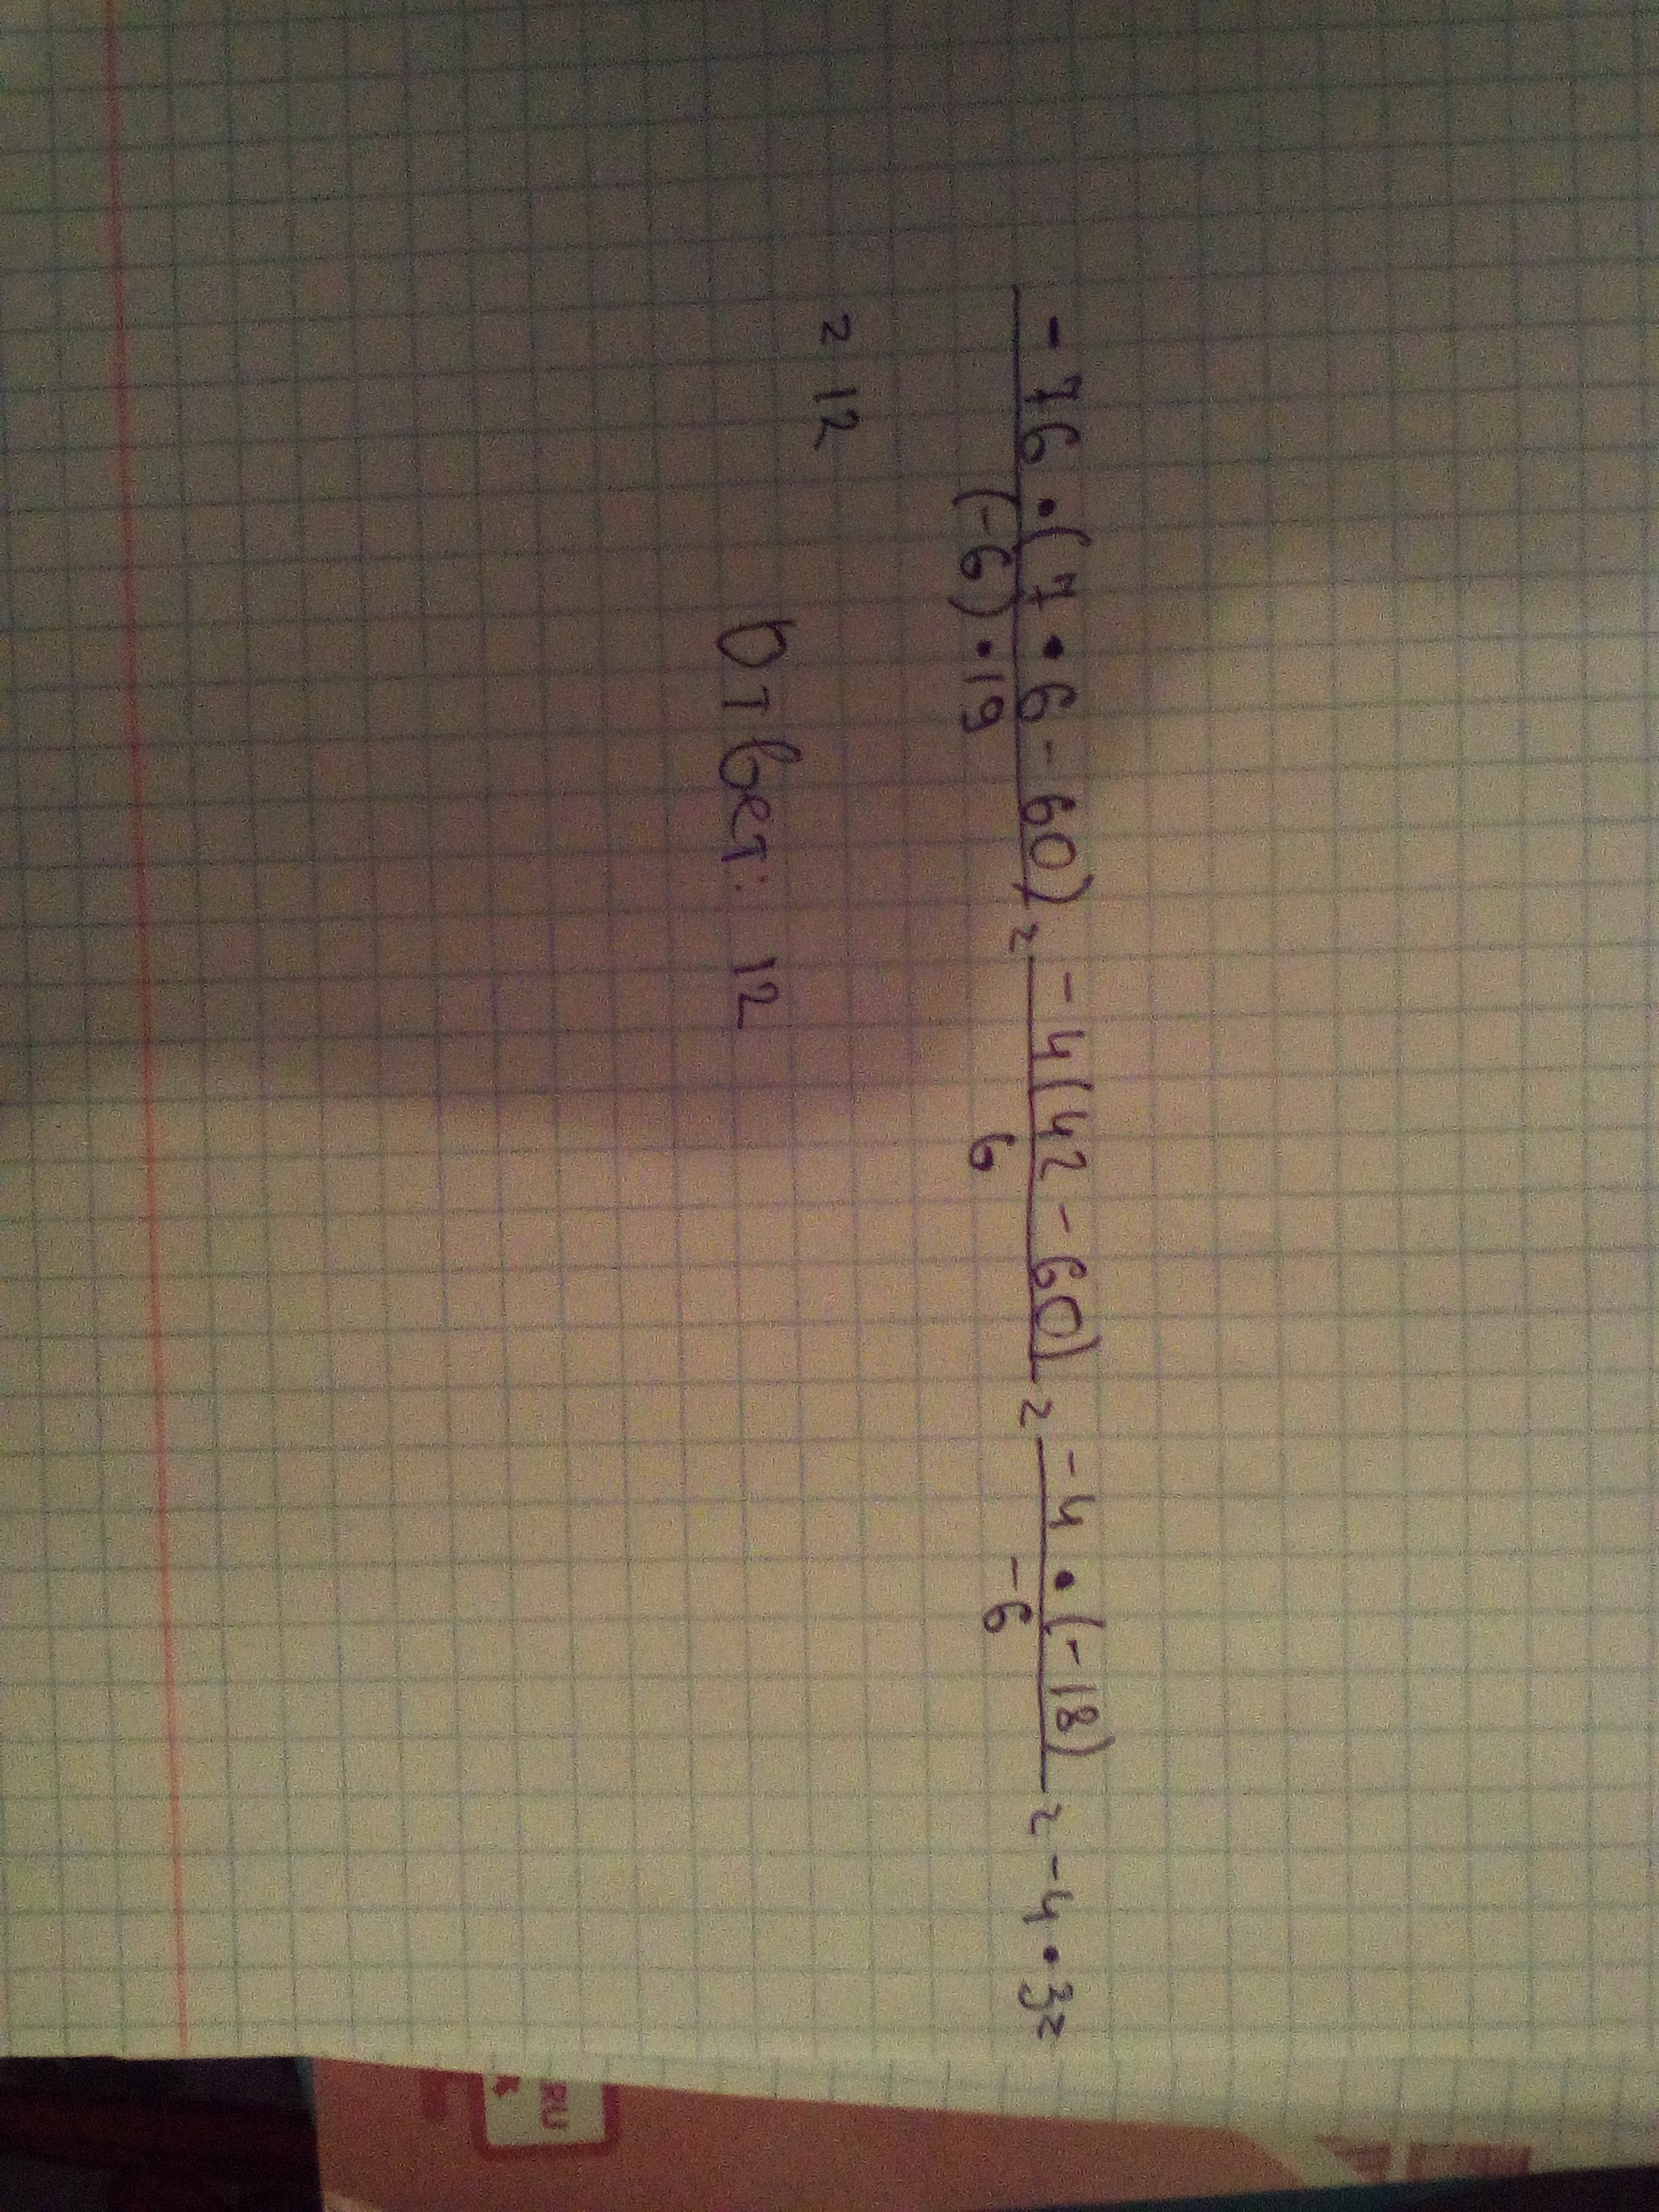 -76 · (7 · 6 - 60) / (-6) · 19 = -4(42 - 60) / 6 = -4 · (-18) / -6 = -4 · 3 =
= 12
Ответ: 12
RU